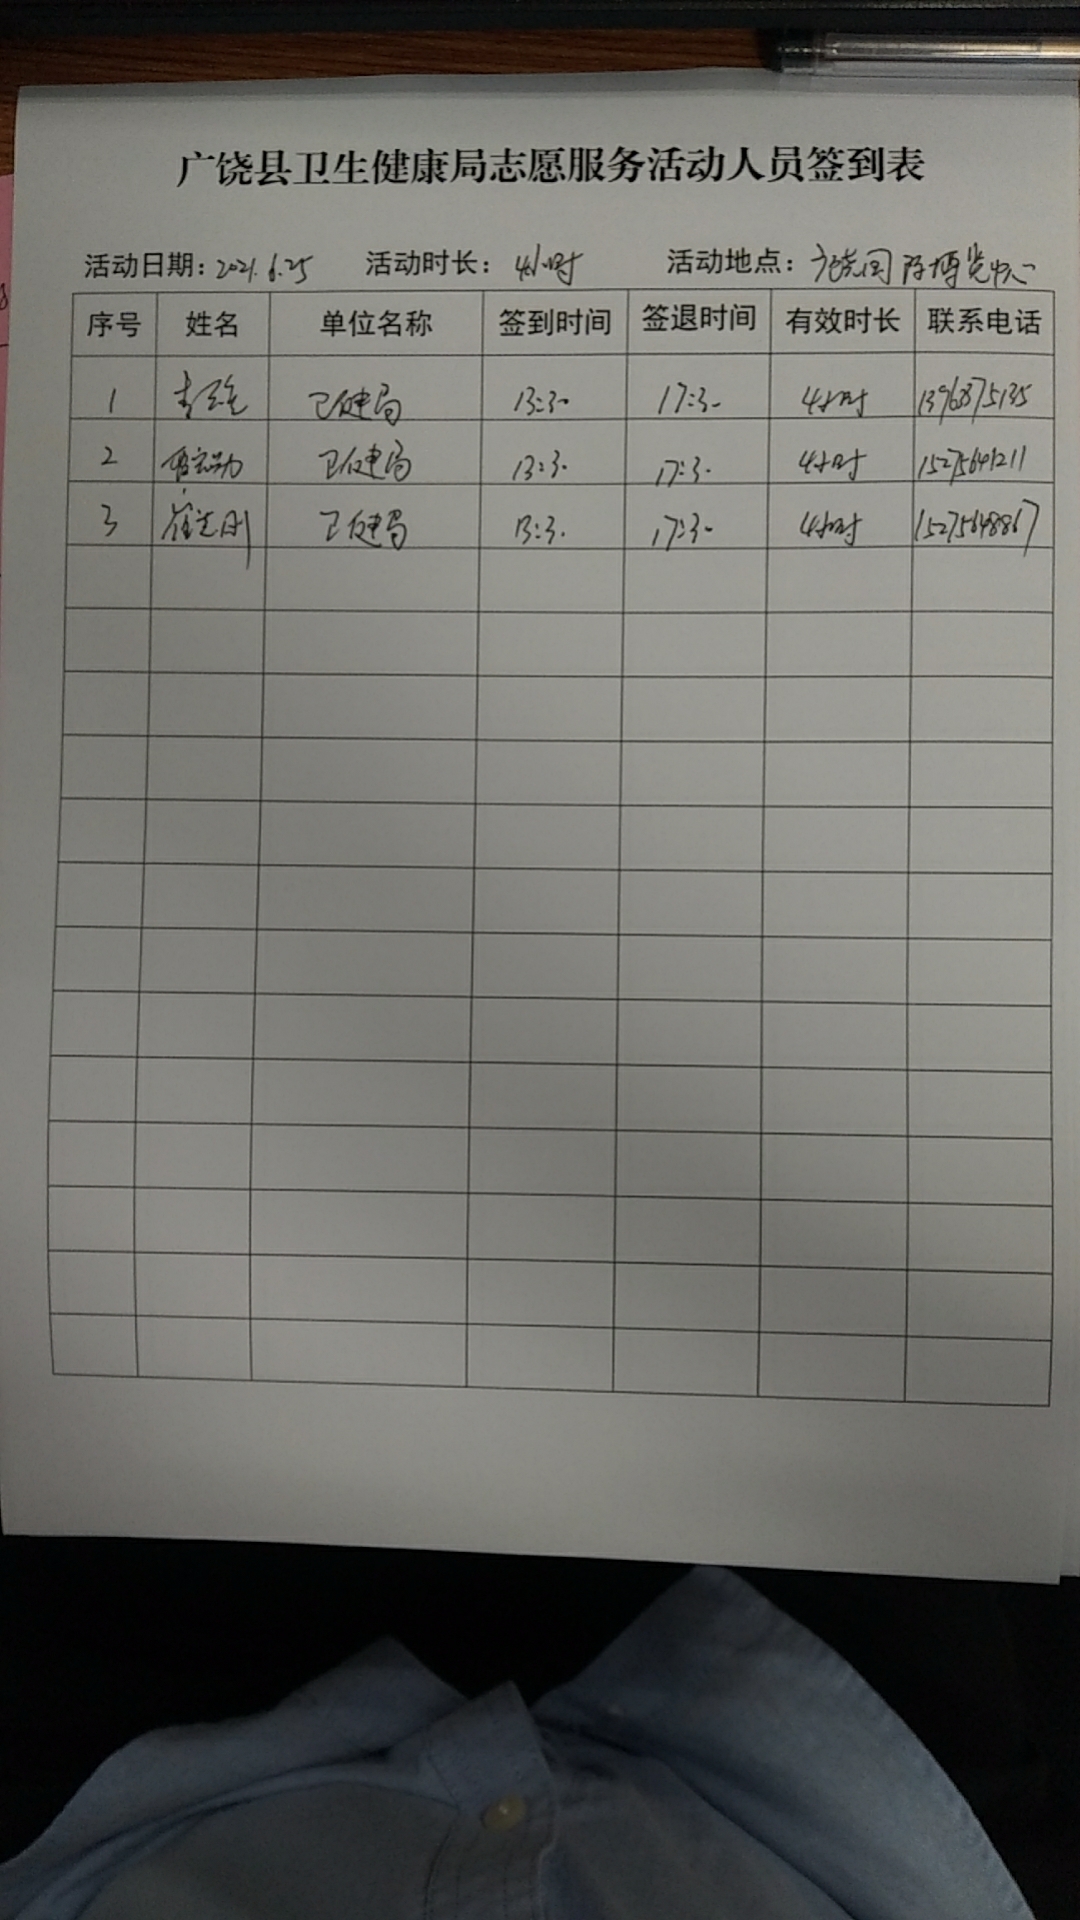 广饶县卫生健康局志愿服务活动人员签到表
活动日期：2021.6.25 活动时长：4小时 活动地点：广饶国际博览中心
序号 姓名 单位名称 签到时间 签退时间 有效时长 联系电话
1 卫健局 13:30 17:30 4小时
2 卫健局 13:30 17:30 4小时 15275641211
3 崔志刚 卫健局 13:30 17:30 4小时 15275648867